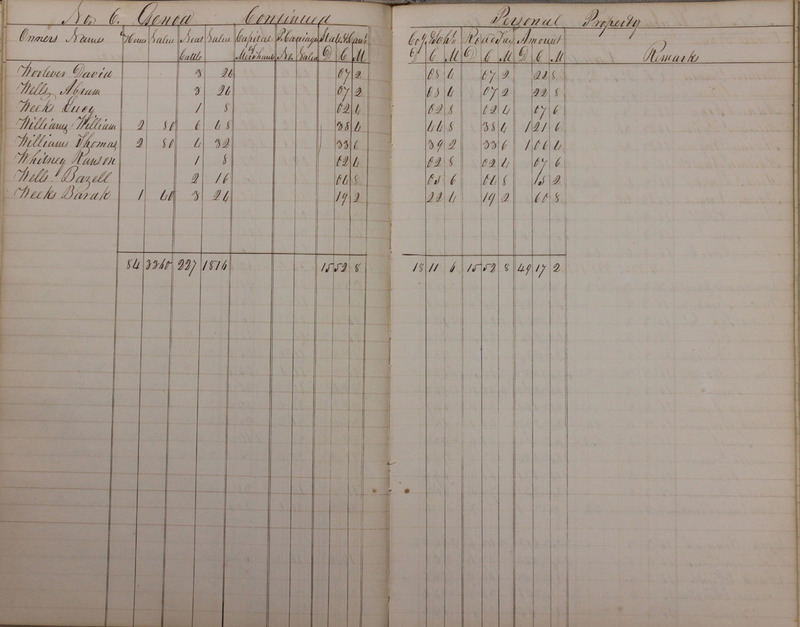 No 6. Genoa Continued Personal Property
Owners Names Horses Value Neat Cattle Value Capital of Merchants P. Carriages No. Value State & Canal D C M Co. & Sch'l D C M Road Tax D C M Amount D C M Remarks
Woolever David 3 24 07 2 08 4 07 2 22 8
Wells Abram 3 24 07 2 08 4 07 2 22 8
Weeks Lucy 1 8 02 4 02 8 02 4 07 6
Williams William 2 80 6 48 38 4 44 8 38 4 1 21 6
Williams Thomas 2 80 4 32 33 6 39 2 33 6 1 06 4
Whitney Ranson 1 8 02 4 02 8 02 4 07 6
Wells Bazell 2 16 04 8 05 6 04 8 15 2
Weeks Barak 1 40 3 24 19 2 22 4 19 2 60 8
84 3360 227 1816 15 52 8 18 11 6 15 52 8 49 17 2